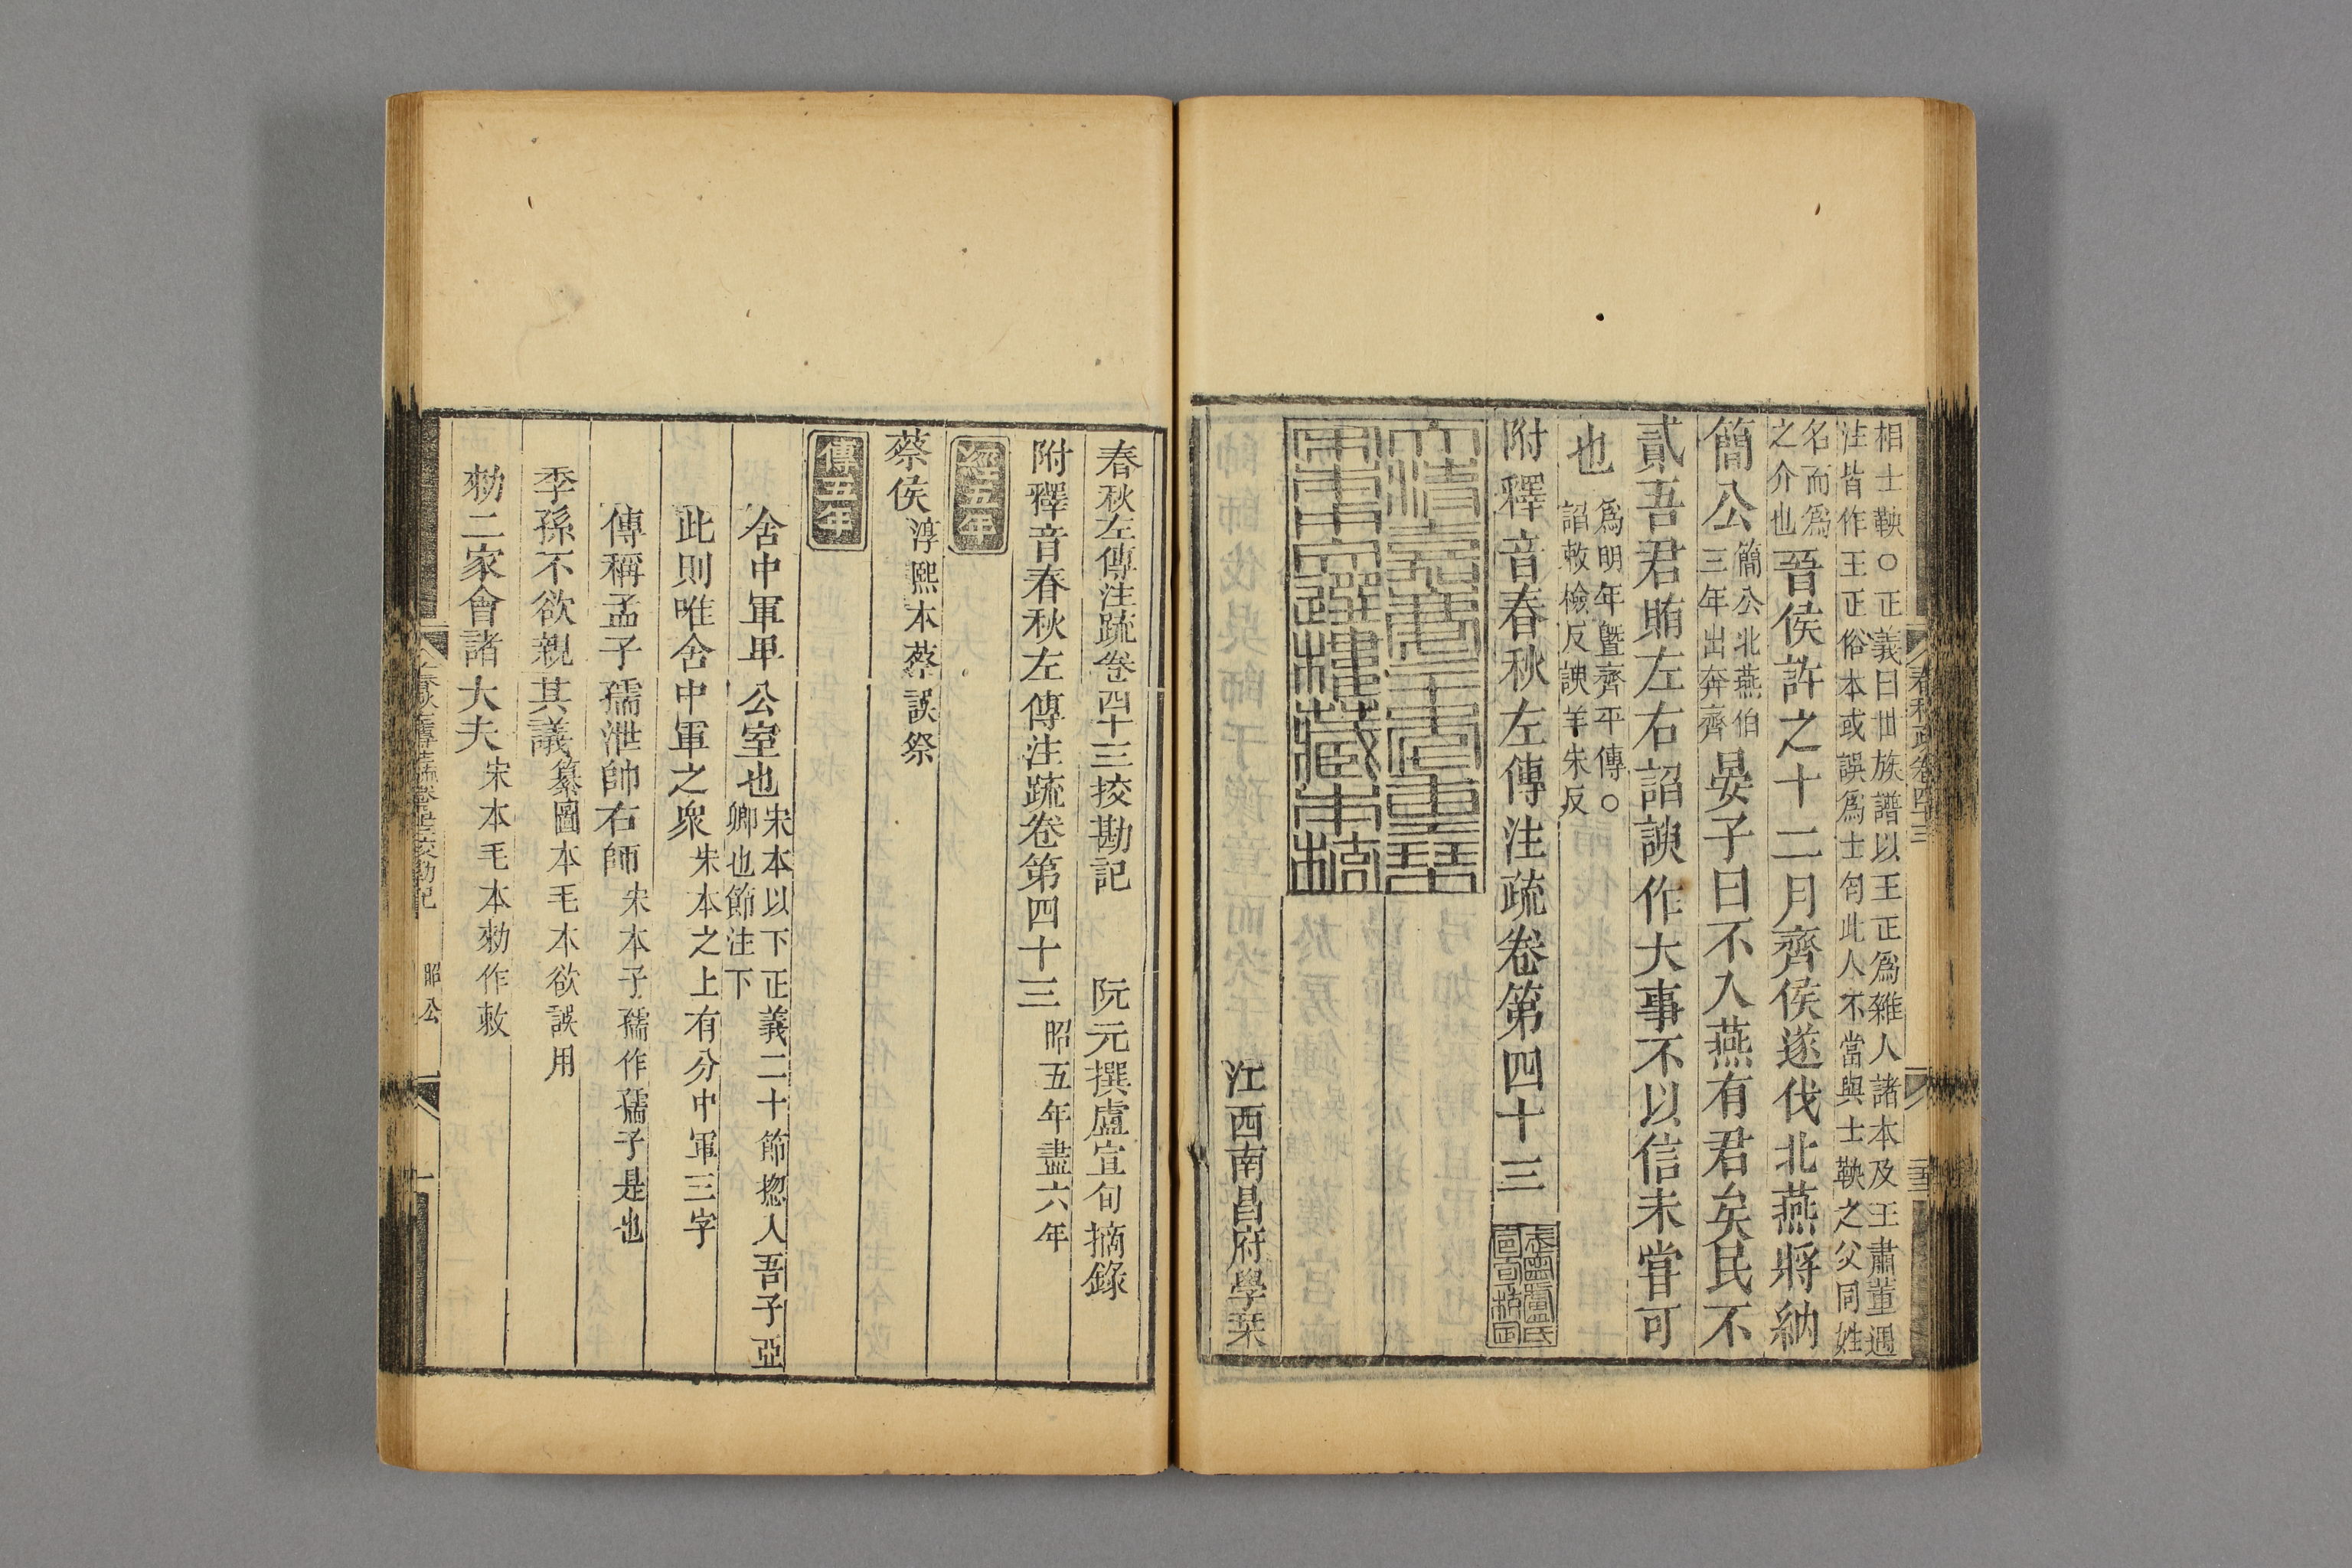 相士鞅○正義曰世族譜以王正爲雜人諸本及王肅董遇
注皆作王正俗本或誤爲士匄此人不當與士鞅之父同姓
名而爲
之介也晉侯許之十二月齊侯遂伐北燕將納
簡公簡公北燕伯三年出奔齊晏子曰不入燕有君矣民不
貳吾君賄左右諂諛作大事不以信未嘗可
也爲明年暨齊平傳○諂敕檢反諛羊朱反
附釋音春秋左傳注疏卷第四十三
江西南昌府學栞
春秋左傳注疏卷四十三挍勘記 阮元撰盧宣旬摘錄
附釋音春秋左傳注疏卷第四十三昭五年盡六年
經五年
蔡侯淳熙本蔡誤祭
傳五年
舍中軍卑公室也宋本以下正義二十節揔入吾子亞卿也節注下
此則唯舍中軍之衆宋本之上有分中軍三字
傳稱孟子孺泄帥右師宋本子孺作孺子是也
季孫不欲親其議纂圖本毛本欲誤用
勑二家會諸大夫宋本毛本勑作敕
昭公